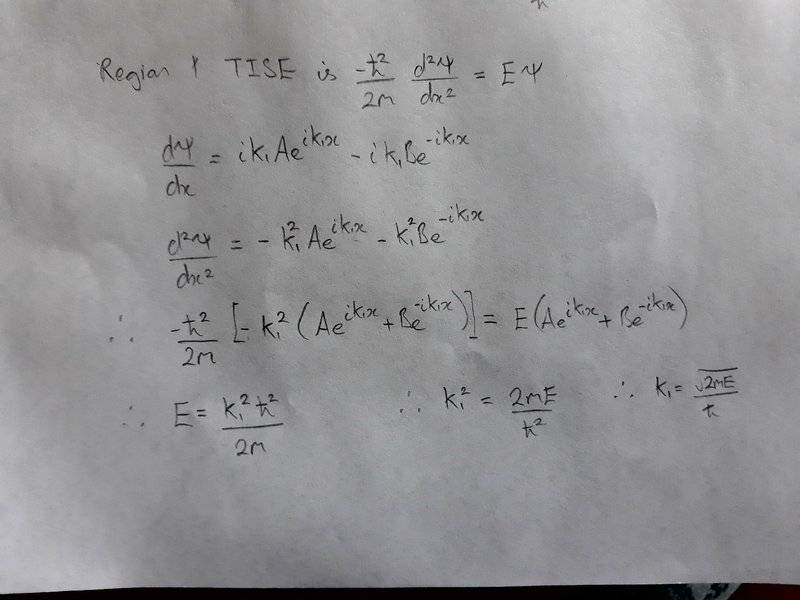 Region 1 TISE is -ħ²/2m d²ψ/dx² = Eψ
dψ/dx = ik₁Ae^{ik₁x} - ik₁Be^{-ik₁x}
d²ψ/dx² = - k₁²Ae^{ik₁x} - k₁²Be^{-ik₁x}
∴ -ħ²/2m [- k₁² (Ae^{ik₁x} + Be^{-ik₁x})] = E(Ae^{ik₁x} + Be^{-ik₁x})
∴ E = k₁²ħ²/2m ∴ k₁² = 2mE/ħ² ∴ k₁ = √2mE/ħ